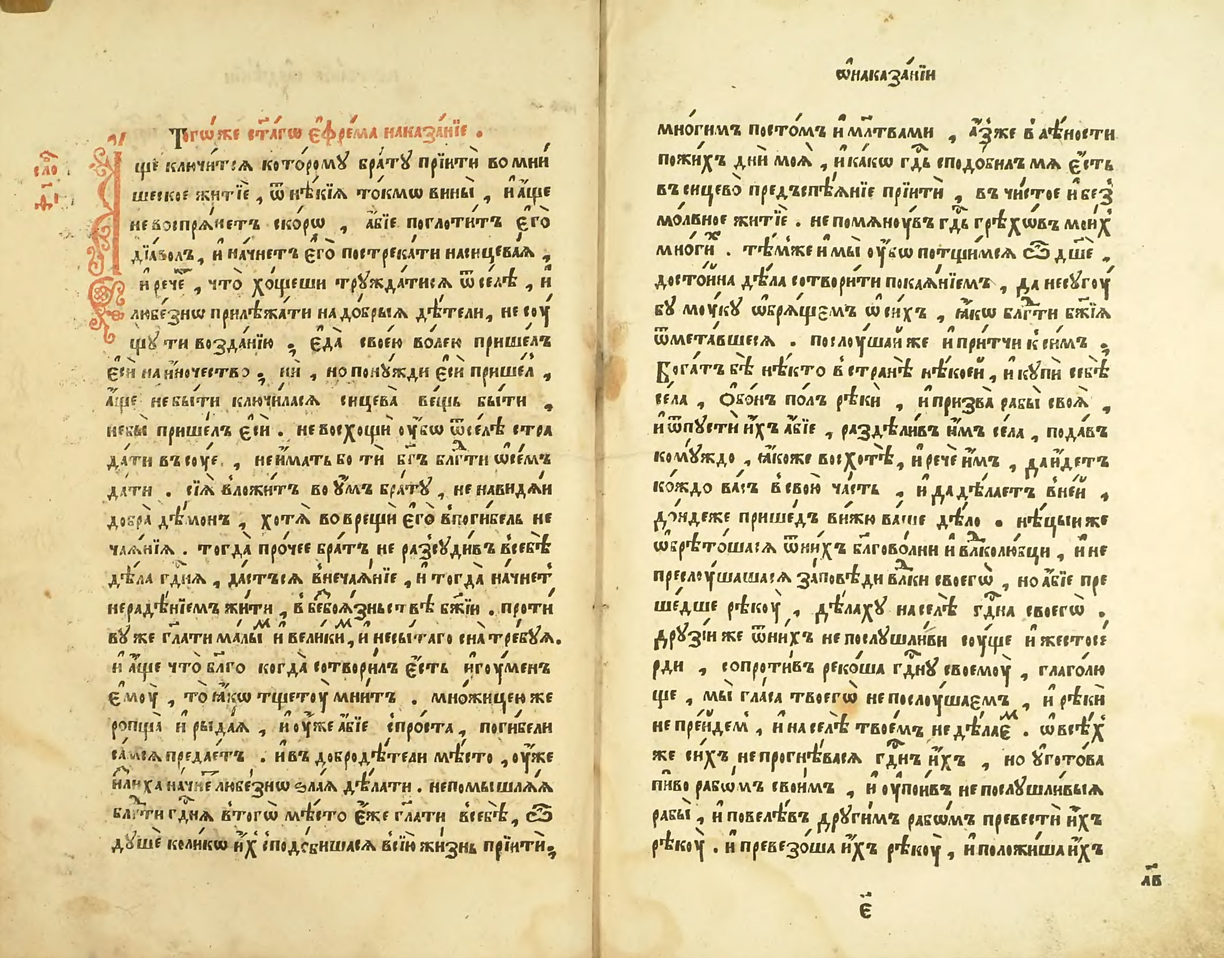 Тогѡ́же ст҃а́гѡ є҆фре́ма наказа́нїе .
сло́
ще ключи́тсѧ кото́ромꙋ бра́тꙋ прїитѝ во мни́
шеское житїѐ , ѿ нѣ́кїѧ то́кмѡ вины̀ , и҆ а҆́ще
не воспрѧ́нетъ ско́рѡ , а҆́бїе поглоти́тъ є҆го̀
дїа́волъ , и҆ начне́тъ є҆го̀ пострека́ти на сицева́ѧ ,
и҆ рече́ , что̀ хо́щеши трꙋжда́тисѧ ѿсе́лѣ , и҆
любе́знѡ прилѣжа́ти на до́брыѧ дѣ́тели , не сꙋ́
щꙋ ти возда́нїю ; є҆да̀ свое́ю во́лею прише́лъ
є҆сѝ на и҆́ночество ; нѝ , но по нꙋ́жди є҆сѝ прише́л ,
а҆́ще не бы́ти ключи́ласѧ си́цева ве́щь бы́ти ,
не бы̀ прише́лъ є҆сѝ . не восхощѝ ᲂу҆́бѡ ѿсе́лѣ стра
да́ти въ сꙋ́е , не и҆́мать бо ти бг҃ъ блгⷣти ѡ҆ се́мъ
да́ти . сїѧ̀ вложи́тъ во ᲂу҆́мъ бра́тꙋ , ненави́дѧи
добра̀ де́монъ , хотѧ̀ воврещѝ є҆го̀ в поги́бель не
ча́ѧнїѧ . тогда̀ про́чее бра́тъ не разсꙋди́въ в себѣ̀
дѣ́ла гдⷭ҇нѧ , да́стъсѧ в неча́ѧнїе , и҆ тогда̀ начне́т
нераде́нїемъ жи́ти , в безбоѧ́зньствѣ бж҃їи . проти́
вꙋ же гл҃ати ма́лымъ и҆ вели́кимъ , и҆ несы́таго сна̀ тре́бꙋѧ .
и҆ а҆́ще что̀ бл҃го когда̀ сотвори́лъ є҆́сть и҆гꙋ́менъ
є҆мꙋ̀ , то ꙗ҆́кѡ тщетꙋ̀ мни́тъ . мно́жицею же
ропща̀ и҆ рыда́ѧ , и҆ ᲂу҆́же а҆́бїе спро́ста , поги́бели
са́мсѧ предае́тъ . и҆ въ доброде́тели мѣ́сто , ᲂу҆́же
и҆ ли́ха начне́ любе́знѡ ѕла́ѧ дѣ́лати . не помышлѧ́ѧ
блгⷣти гдⷭ҇нѧ в то́гѡ мѣ́сто є҆́же гл҃ати в себѣ̀ , ѽ
дꙋшѐ коли́кѡ и҆́х сподо́бишасѧ в сїю̀ жи́знь прїитѝ ,
ѡ҆ наказа́нїи
мно́гимъ посто́мъ и҆ мл҃твами , а҆́зже в лѣ́ности
пожи́хъ днѝ моѧ̀ , и҆ ка́кѡ гдⷭ҇ь сподо́билъ мѧ є҆́сть
въ си́цево предъспѣ́ѧнїе прїитѝ , въ чи́стое и҆ без
мо́лвное житїѐ . не помѧнꙋ́въ гдⷭ҇ь грѣхѡ́въ мои́х
мно́гих . тѣ́мже и҆ мы̀ ᲂу҆́бѡ потщи́мсѧ ѽ дш҃ѐ ,
досто́йна дѣ́ла сотвори́ти покаѧ́нїемъ , да не сꙋгꙋ́
бꙋ мꙋ́кꙋ ѡ҆брѧ́щемъ ѡ҆ си́хъ , ꙗ҆́кѡ блгⷣти бж҃їѧ
ѿмета́вшесѧ . послꙋ́шай же и҆ при́тчи к си́мъ ,
Бога́тъ бѣ̀ нѣ́кто в странѣ̀ нѣ́коей , и҆ кꙋпѝ себѣ̀
се́ла , ѻ҆б о́нъ по́лъ рѣкѝ , и҆ призва̀ рабы̀ своѧ̀ ,
и҆ ѿпꙋстѝ и҆́хъ а҆́бїе , раздѣли́въ и҆́мъ се́ла , пода́въ
комꙋ́ждо , ꙗ҆́коже восхотѣ̀ , и҆ речѐ и҆́мъ , да и҆́детъ
ко́ждо ва́съ в свою̀ ча́сть , и҆ да дѣ́лаетъ в не́й ,
до́ндеже прише́дъ ви́жю ва́ше дѣ́ло . нѣ́цыи же
ѡ҆брѣто́шасѧ ѿ ни́хъ блгово́лни и҆ влⷣколю́бцы , и҆ не
преслꙋ́шашасѧ за́повѣди влⷣки своегѡ̀ , но а҆́бїе пре
ше́дше рѣкꙋ̀ , дѣ́лахꙋ на селѣ̀ гдⷭ҇на своегѡ̀ .
дрꙋзі́и же ѿ ни́хъ не послꙋшли́ви сꙋ́ще и҆ жестосе́
рди , сопроти́въ реко́ша гдⷭ҇нꙋ своемꙋ̀ , глаго́лю
ще , мы̀ гла́са твоегѡ̀ не послꙋ́шаемъ , и҆ рѣкѝ
не пре́йдем , и҆ на селѣ̀ твое́мъ не дѣ́лаем . ѡ҆ всѣ́х
же си́хъ не прогнѣ́васѧ гдⷭ҇нъ и҆́хъ , но ᲂу҆гото́ва
пи́во рабѡ́мъ свои́мъ , и҆ ᲂу҆пои́въ не послꙋшли́выѧ
рабы̀ , и҆ повелѣ́въ дрꙋги́мъ рабѡ́мъ превестѝ и҆́хъ
рѣкꙋ̀ . и҆ превезо́ша и҆́хъ рѣкꙋ̀ , и҆ положи́ша и҆́хъ
л҃в
є҃